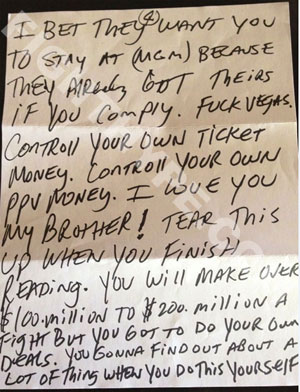 I BET THEY(2) WANT YOU
TO STAY AT (MGM) BECAUSE
THEY Already GOT Theirs
iF YOU COMPLY. FUCK VEGAS.
CONTROLL YOUR OWN TICKET
MONEY. CONTROLL YOUR OWN
PPV MONEY. I LOVE YOU
MY BROTHER! TEAR THIS
UP WHEN YOU FINISH
READING. YOU WILL MAKE OVER
$100.million TO $200.million A
FIGHT BUT YOU GOT TO DO YOUR OWN
DEALS. YOU GONNA FIND OUT ABOUT A
LOT OF THING WHEN YOU DO THIS YOURSELF